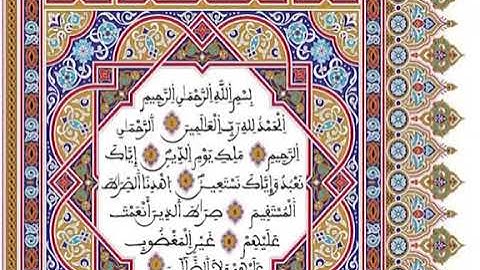 بِسْمِ اللَّهِ الرَّحْمَٰنِ الرَّحِيمِ
الْحَمْدُ لِلَّهِ رَبِّ الْعَالَمِينَ الرَّحْمَٰنِ
الرَّحِيمِ مَلِكِ يَوْمِ الدِّينِ إِيَّاكَ
نَعْبُدُ وَإِيَّاكَ نَسْتَعِينُ اهْدِنَا الصِّرَاطَ
الْمُسْتَقِيمَ صِرَاطَ الَّذِينَ أَنْعَمْتَ
عَلَيْهِمْ غَيْرِ الْمَغْضُوبِ
عَلَيْهِمْ وَلَا الضَّالِّينَ